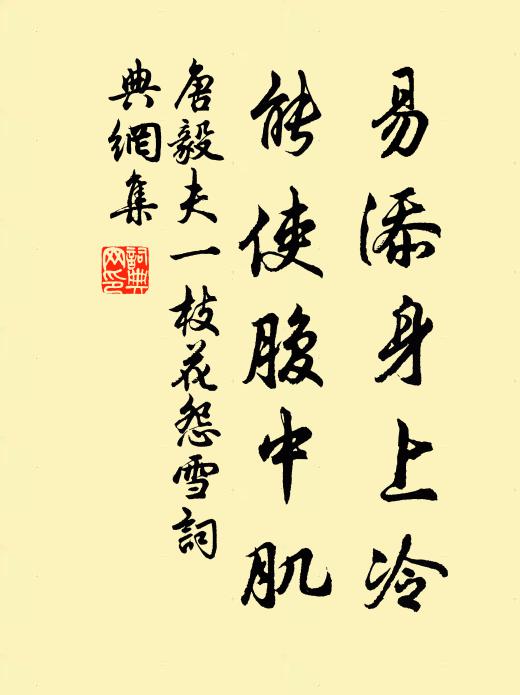 易添身上冷
能使腹中肌
唐毅夫一枝花怨雪詞
典網集
詞典网印